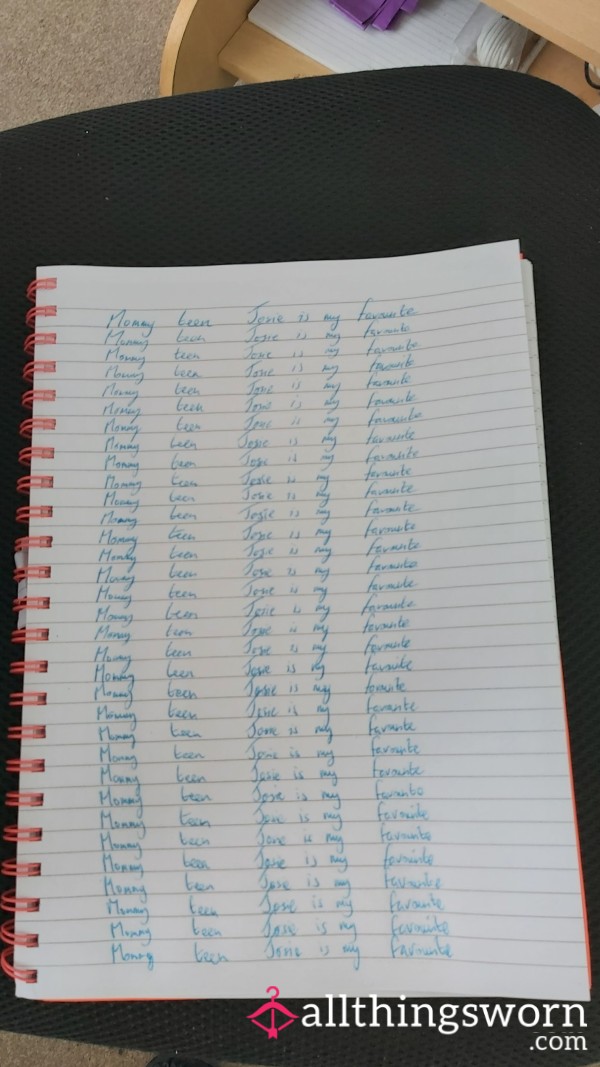 Mommy teen Josie is my favourite
Mommy teen Josie is my favourite
Mommy teen Josie is my favourite
Mommy teen Josie is my favourite
Mommy teen Josie is my favourite
Mommy teen Josie is my favourite
Mommy teen Josie is my favourite
Mommy teen Josie is my favourite
Mommy teen Josie is my favourite
Mommy teen Josie is my favourite
Mommy teen Josie is my favourite
Mommy teen Josie is my favourite
Mommy teen Josie is my favourite
Mommy teen Josie is my favourite
Mommy teen Josie is my favourite
Mommy teen Josie is my favourite
Mommy teen Josie is my favourite
Mommy teen Josie is my favourite
Mommy teen Josie is my favourite
Mommy teen Josie is my favourite
Mommy teen Josie is my favourite
Mommy teen Josie is my favourite
Mommy teen Josie is my favourite
Mommy teen Josie is my favourite
Mommy teen Josie is my favourite
Mommy teen Josie is my favourite
Mommy teen Josie is my favourite
Mommy teen Josie is my favourite
Mommy teen Josie is my favourite
Mommy teen Josie is my favourite
Mommy teen Josie is my favourite
Mommy teen Josie is my favourite
Mommy teen Josie is my favourite
allthingsworn
.com